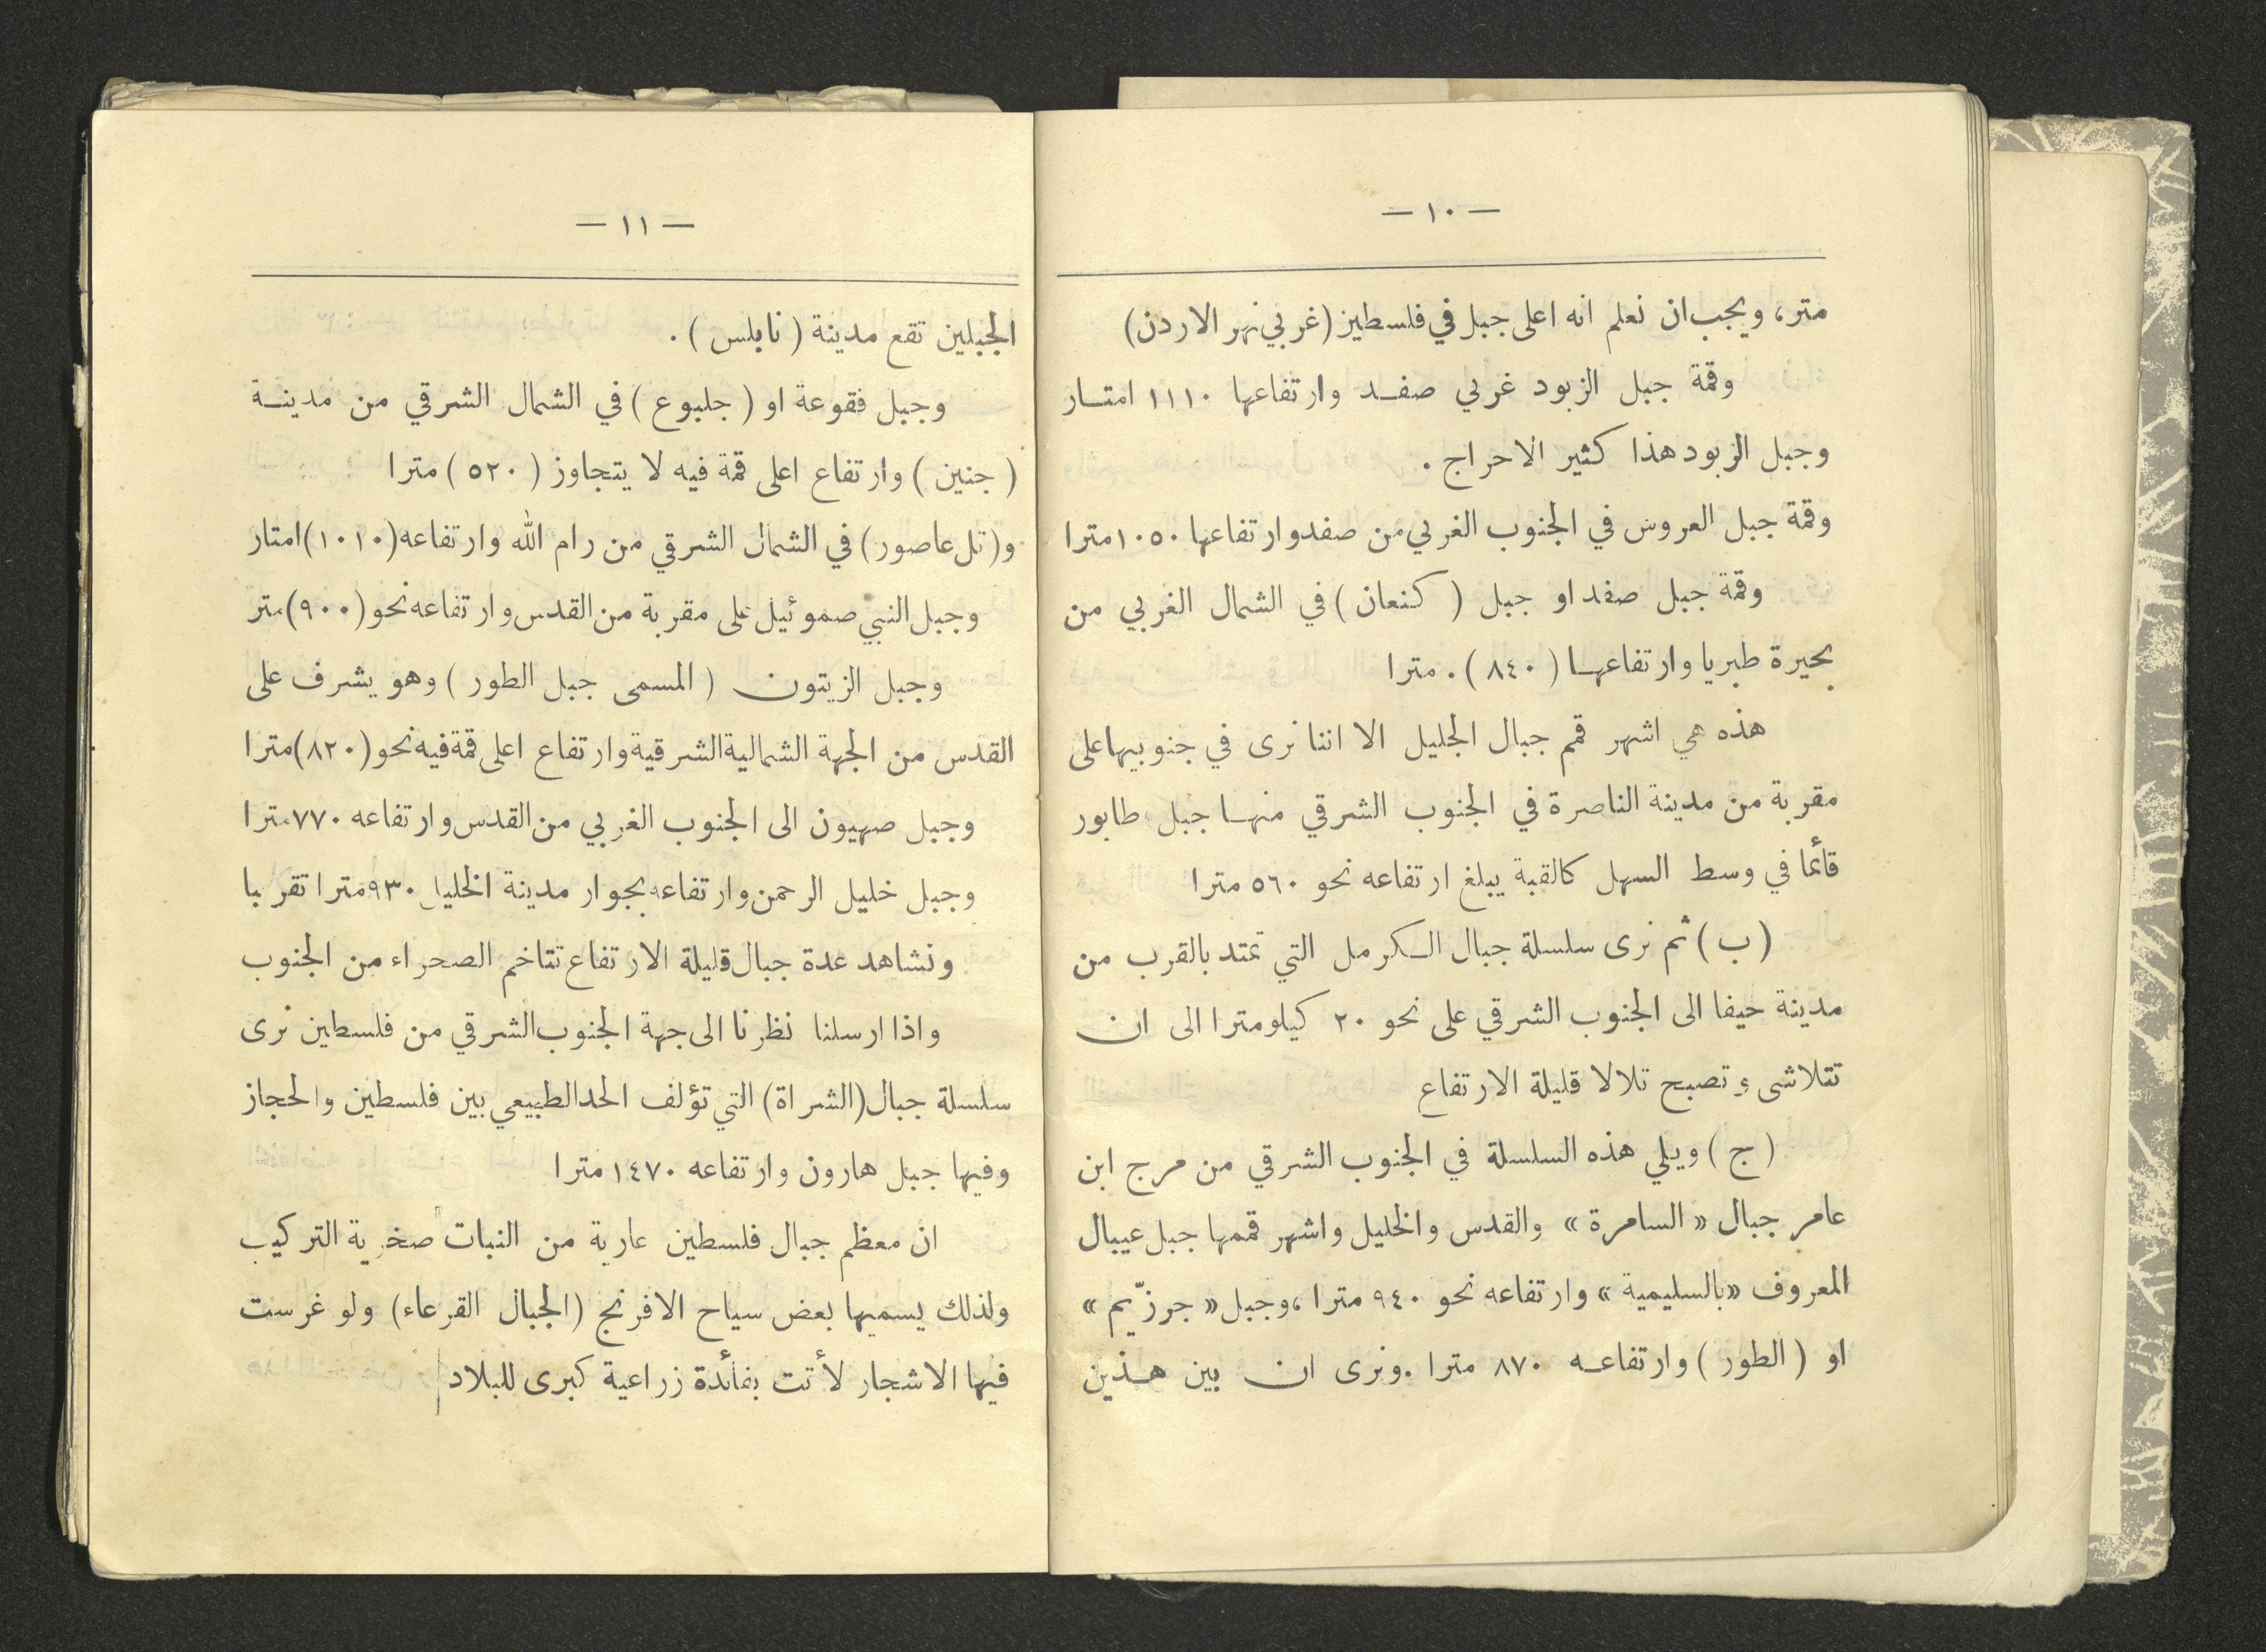 — ١٠ —
متر، ويجب ان نعلم انه اعلى جبل في فلسطين (غربي نهر الاردن)
وقمة جبل الزبود غربي صفد وارتفاعها ١١١٠ امتار
وجبل الزبود هذا كثير الاحراج .
وقمة جبل العروس في الجنوب الغربي من صفد وارتفاعها ١٠٥٠ مترا
وقمة جبل صفد او جبل ( كنعان ) في الشمال الغربي من
بحيرة طبريا وارتفاعها ( ٨٤٠ ) . مترا
هذه هي اشهر قمم جبال الجليل الا اننا نرى في جنوبيها على
مقربة من مدينة الناصرة في الجنوب الشرقي منها جبل طابور
قائما في وسط السهل كالقبة يبلغ ارتفاعه نحو ٥٦٠ مترا
( ب ) ثم نرى سلسلة جبال الكرمل التي تمتد بالقرب من
مدينة حيفا الى الجنوب الشرقي على نحو ٢٠ كيلومترا الى ان
تتلاشى وتصبح تلالا قليلة الارتفاع
( ج ) ويلي هذه السلسلة في الجنوب الشرقي من مرج ابن
عامر جبال « السامرة » والقدس والخليل واشهر قممها جبل عيبال
المعروف «بالسليمية» وارتفاعه نحو ٩٤٠ مترا ، وجبل « جرزّيم »
او ( الطور ) وارتفاعه ٨٧٠ مترا . ونرى ان بين هذين
— ١١ —
الجبلين تقع مدينة ( نابلس ) .
وجبل فقوعة او ( جلبوع ) في الشمال الشرقي من مدينة
( جنين ) وارتفاع اعلى قمة فيه لا يتجاوز ( ٥٢٠ ) مترا
و( تل عاصور ) في الشمال الشرقي من رام الله وارتفاعه (١٠١٠) امتار
وجبل النبي صموئيل على مقربة من القدس وارتفاعه نحو (٩٠٠) متر
وجبل الزيتون ( المسمى جبل الطور ) وهو يشرف على
القدس من الجهة الشمالية الشرقية وارتفاع اعلى قمة فيه نحو (٨٢٠) مترا
وجبل صهيون الى الجنوب الغربي من القدس وارتفاعه ٧٧٠ مترا
وجبل خليل الرحمن وارتفاعه بجوار مدينة الخليل ٩٣٠ مترا تقربا
ونشاهد عدة جبال قليلة الارتفاع تتاخم الصحراء من الجنوب
واذا ارسلنا نظرنا الى جهة الجنوب الشرقي من فلسطين نرى
سلسلة جبال (الشراة) التي تؤلف الحد الطبيعي بين فلسطين والحجاز
وفيها جبل هارون وارتفاعه ١٤٧٠ مترا
ان معظم جبال فلسطين عارية من النبات صخرية التركيب
ولذلك يسميها بعض سياح الافرنج (الجبال القرعاء) ولو غرست
فيها الاشجار لأتت بفائدة زراعية كبرى للبلاد